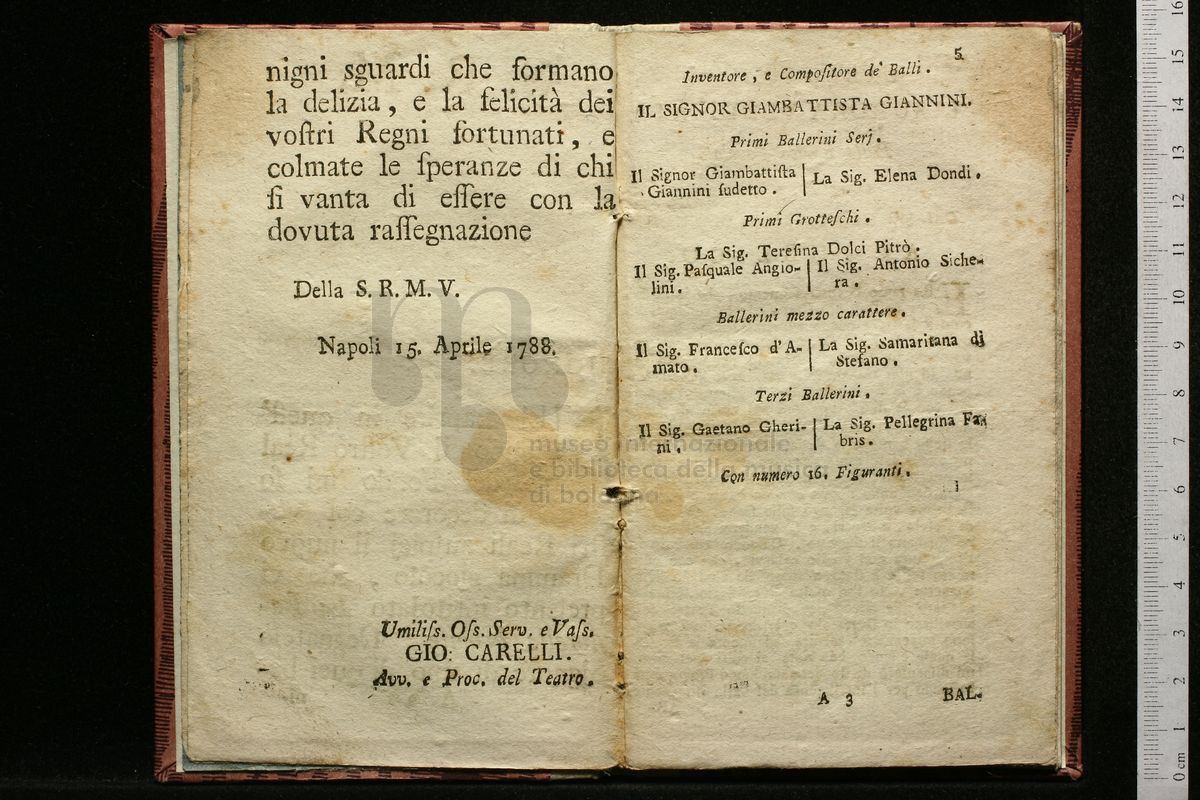 nigni sguardi che formano
la delizia, e la felicità dei
voſtri Regni fortunati, e
colmate le ſperanze di chi
ſi vanta di eſſere con la
dovuta raſſegnazione
Della S. R. M. V.
Napoli 15. Aprile 1788.
Umiliſs. Oſs. Serv. e Vaſs.
GIO: CARELLI.
Avv. e Proc. del Teatro.
5
Inventore, e Compoſitore de' Balli.
IL SIGNOR GIAMBATTISTA GIANNINI.
Primi Ballerini Serj.
Il Signor Giambattiſta | La Sig. Elena Dondi.
Giannini ſudetto.
Primi Grotteſchi.
La Sig. Tereſina Dolci Pitrò.
Il Sig. Paſquale Angio- | Il Sig. Antonio Siche-
lini. | ra.
Ballerini mezzo carattere.
Il Sig. Franceſco d'A- | La Sig. Samaritana di
mato. | Stefano.
Terzi Ballerini.
Il Sig. Gaetano Gheri- | La Sig. Pellegrina Fa-
ni. | bris.
Con numero 16. Figuranti.
A 3 BAL-
museo internazionale
e biblioteca della musica
di bologna
0 cm 1 2 3 4 5 6 7 8 9 10 11 12 13 14 15 16